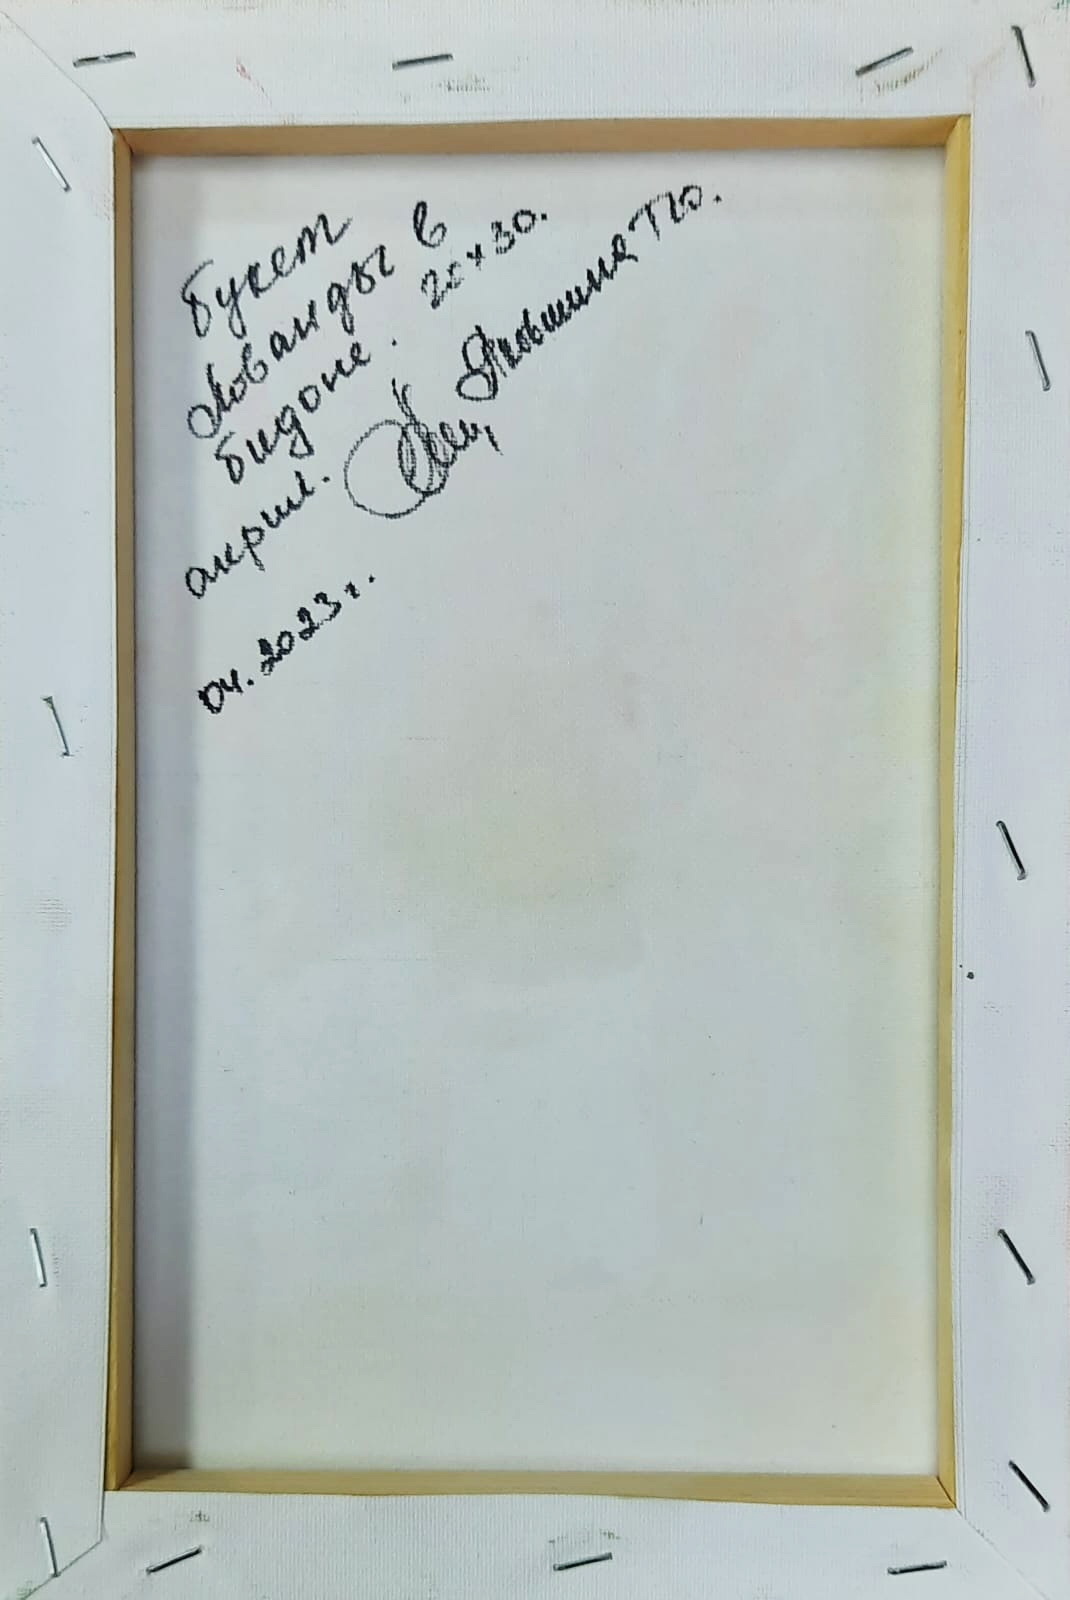 Букет
Лованды в
бидоне. 20х30.
акрил. Яковшина Т.Ю.
04.2023г.